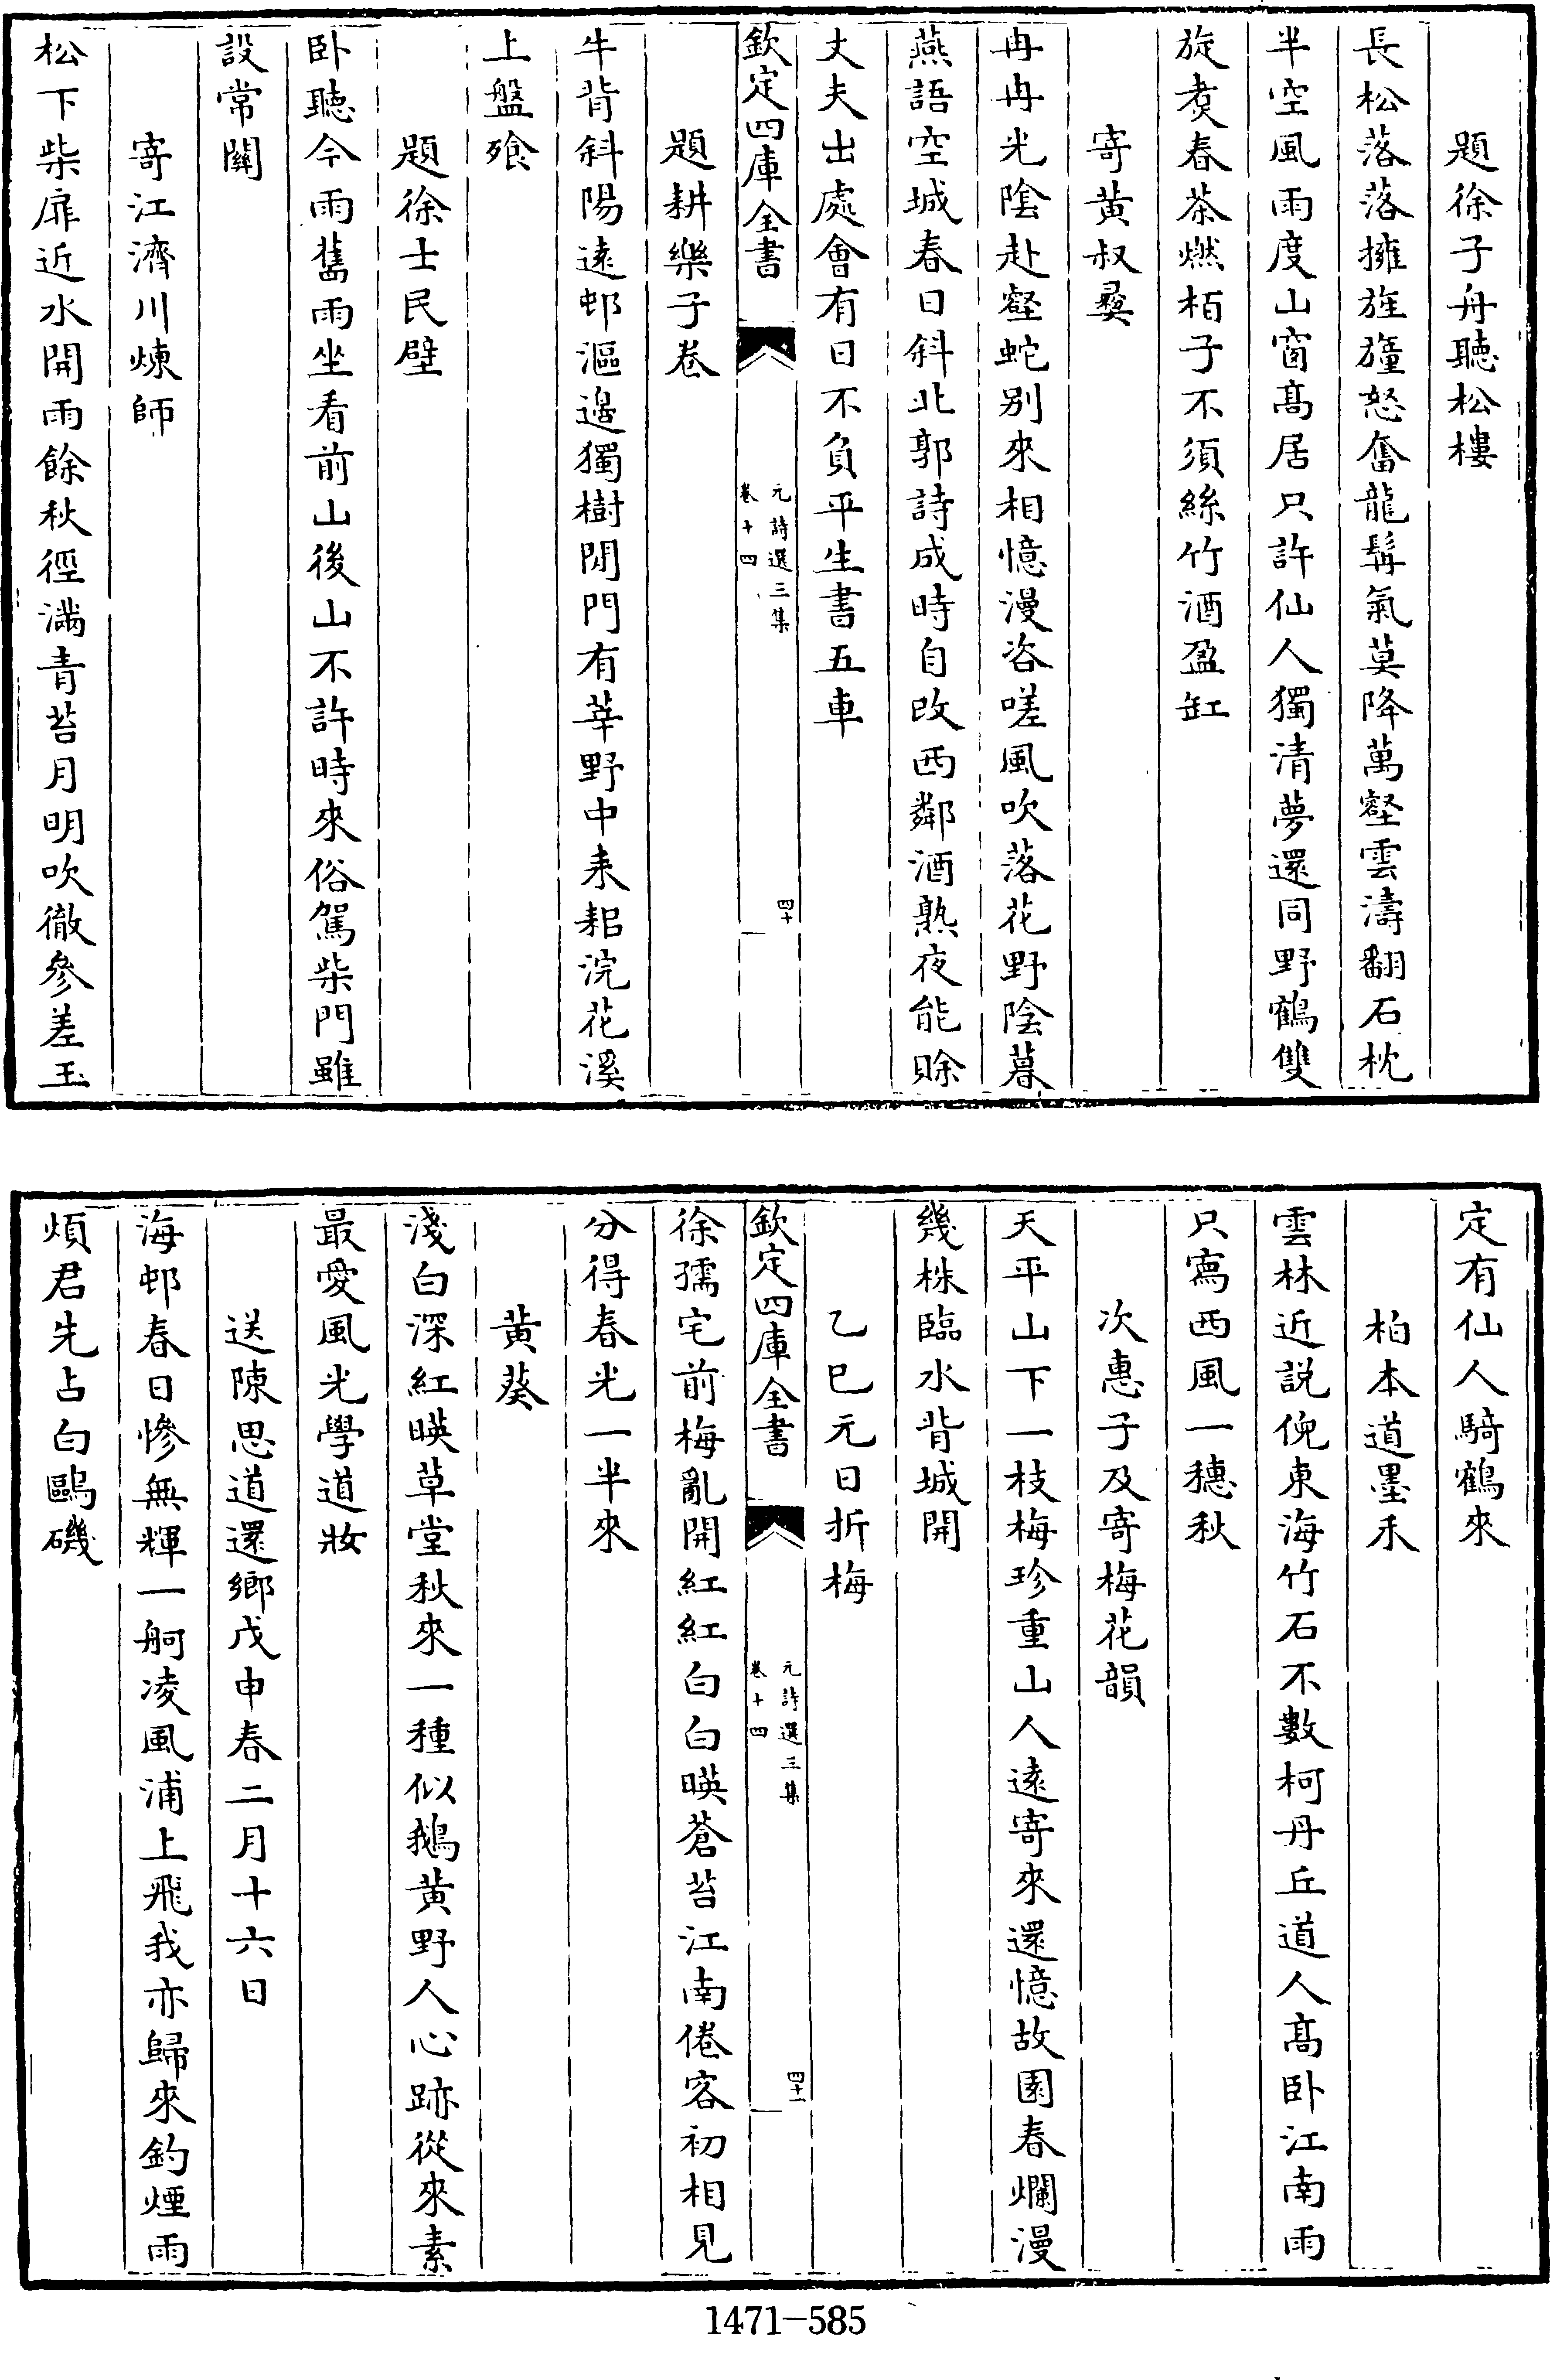 題徐子舟聽松樓
長松落落擁旌旗怒奮龍髯氣莫降萬壑雲濤翻石枕
半空風雨度山窗髙居只許仙人獨清夢還同野鶴雙
旋煑春茶燃栢子不須絲竹酒盈缸
寄黄叔彛
冉冉光陰赴壑蛇别來相憶漫咨嗟風吹落花野陰暮
燕語空城春日斜北郭詩成時自改西鄰酒熟夜能賒
丈夫出處會有日不負平生書五車
欽定四庫全書
元詩選三集
卷十四
四十
題耕樂子卷
牛背斜陽逺邨漚邉獨樹閒門有莘野中耒耜浣花溪
上盤飱
題徐士民壁
卧聽今雨舊雨坐看前山後山不許時來俗駕柴門雖
設常關
寄江濟川煉師
松下柴扉近水開雨餘秋徑滿青苔月明吹徹參差玉
定有仙人騎鶴來
柏本道墨禾
雲林近説倪東海竹石不數柯丹丘道人髙卧江南雨
只寫西風一穗秋
次惠子及寄梅花韻
天平山下一枝梅珍重山人逺寄來還憶故園春爛漫
幾株臨水背城開
乙巳元日折梅
欽定四庫全書
元詩選三集
卷十四
四十一
徐孺宅前梅亂開紅紅白白暎蒼苔江南倦客初相見
分得春光一半來
黄葵
淺白深紅暎草堂秋來一種似鵝黄野人心跡從來素
最愛風光學道妝
送陳思道還鄉戊申春二月十六日
海邨春日慘無輝一舸凌風浦上飛我亦歸來釣煙雨
煩君先占白鷗磯
1471-585